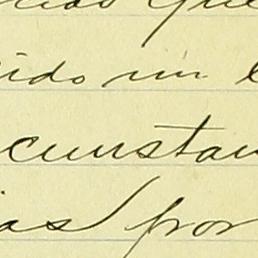 que
ido un
cunstan
as por